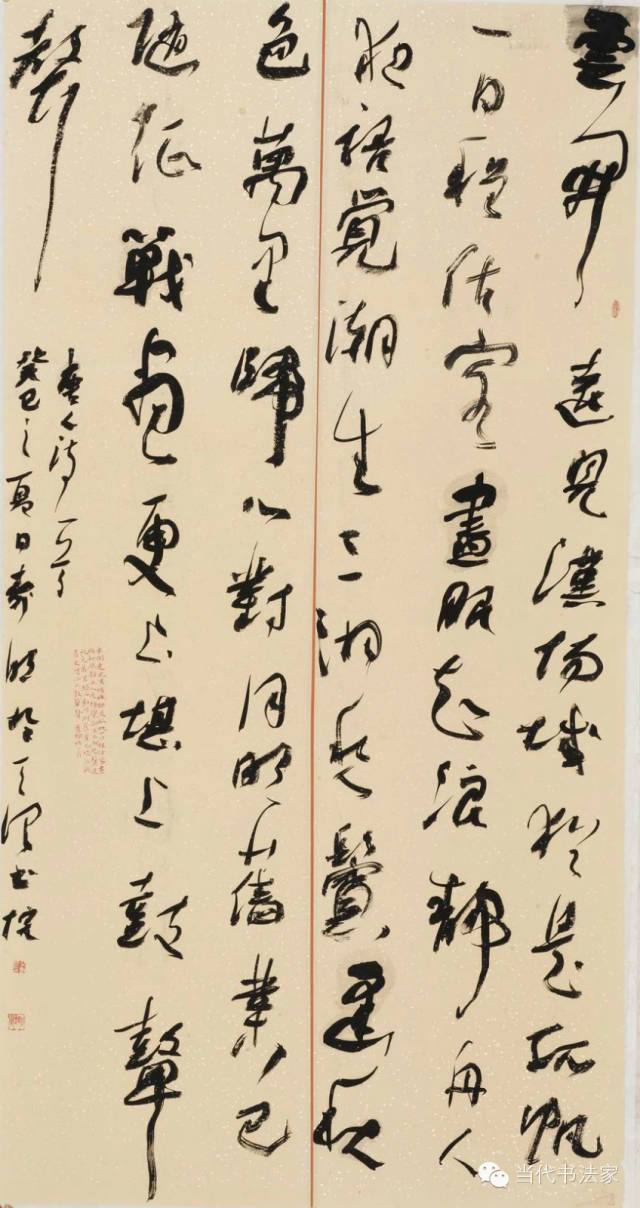 雲開遠見漢陽城於是孤帆
一日程估客晝眠知浪靜舟人
夜語覺潮生三湘愁鬢逢秋
色萬里歸心對月明舊業已
隨征戰盡更堪上鼓鼙
聲
唐人詩一首
癸巳之夏日於書院
当代书法家